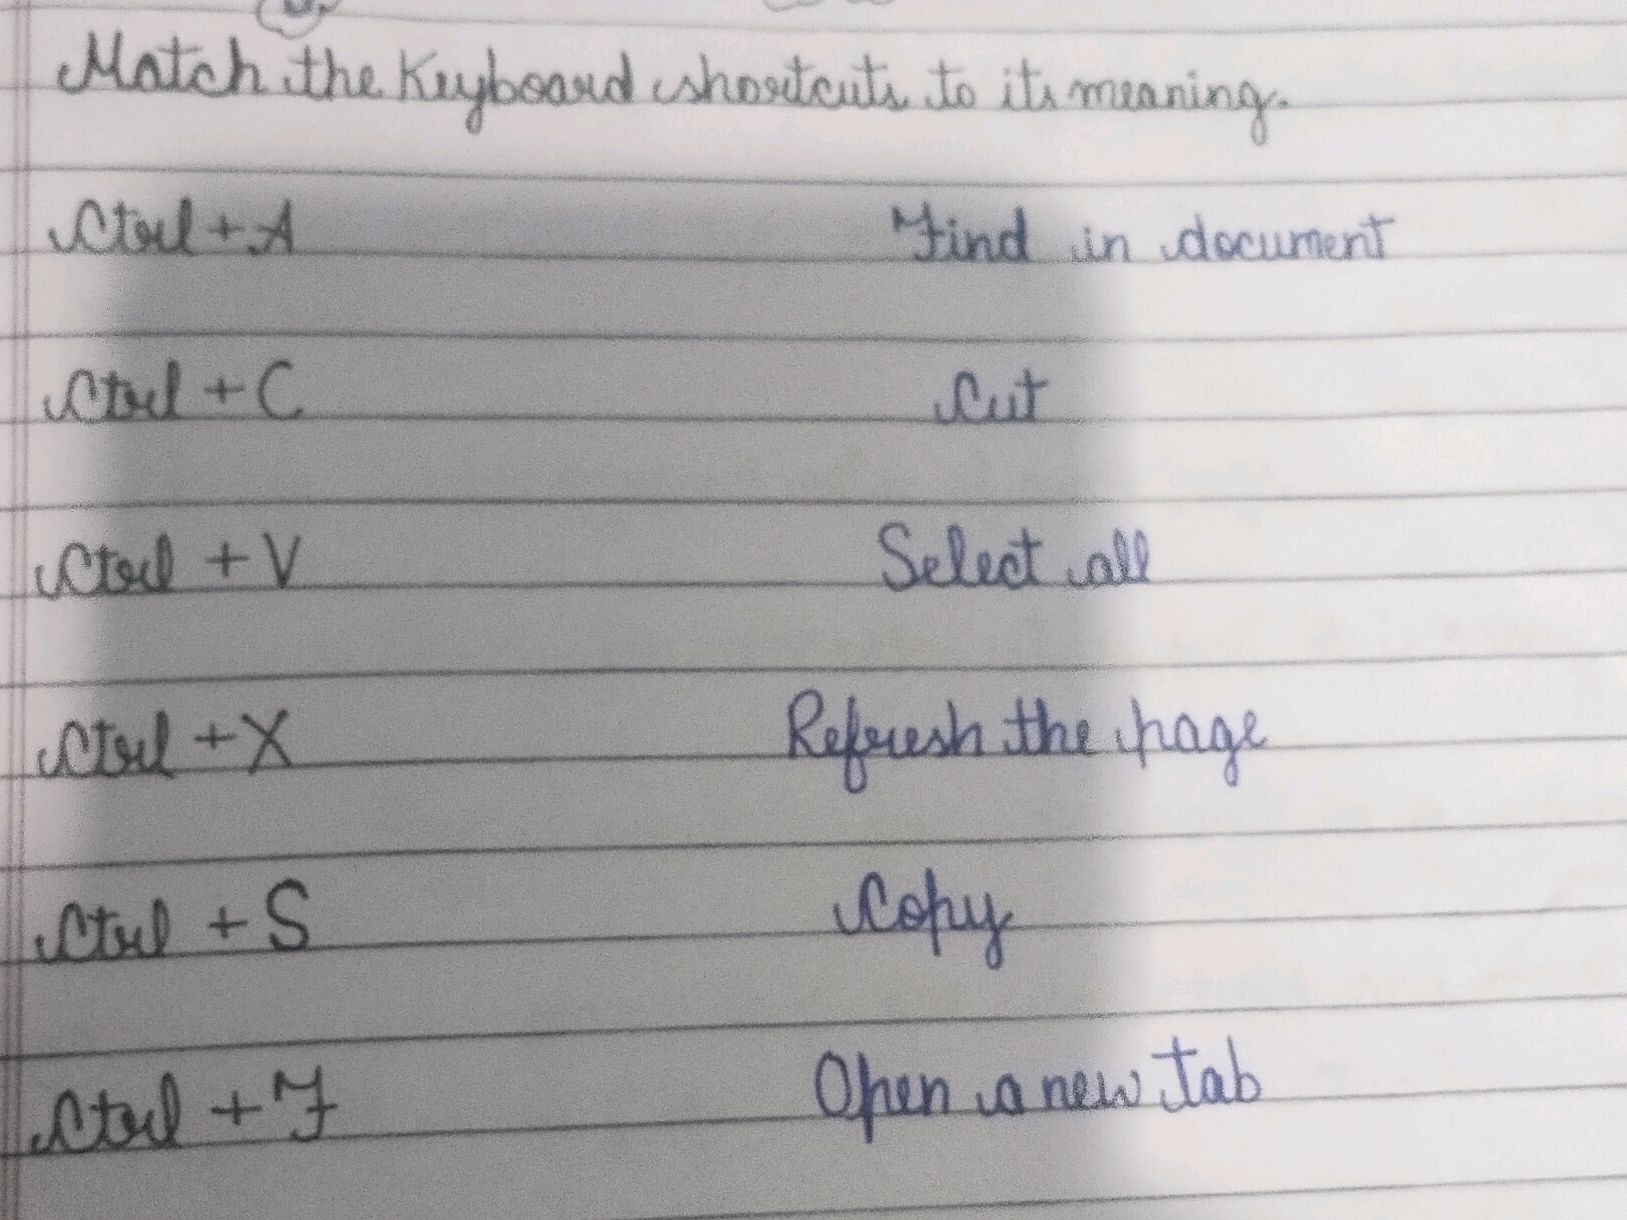 Match the Keyboard shortcuts to its meaning.
Ctrl + A Find in document
Ctrl + C Cut
Ctrl + V Select all
Ctrl + X Refresh the page
Ctrl + S Copy
Ctrl + F Open a new tab